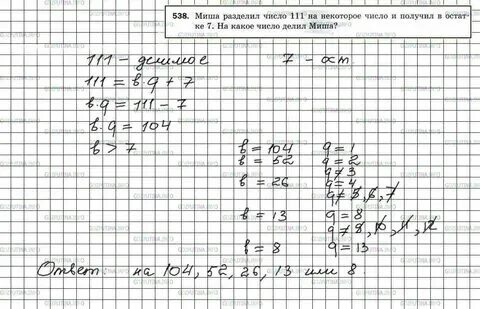 538. Миша разделил число 111 на некоторое число и получил в остат-
ке 7. На какое число делил Миша?
111 – делимое 7 – ост.
111 = в·q + 7
в·q = 111 – 7
в·q = 104
в > 7
в = 104 q = 1
в = 52 q = 2
q ≠ 3
в = 26 q = 4
q ≠ 5, 6, 7
в = 13 q = 8
q ≠ 9, 10, 11, 12
в = 8 q = 13
Ответ: на 104, 52, 26, 13 или 8.